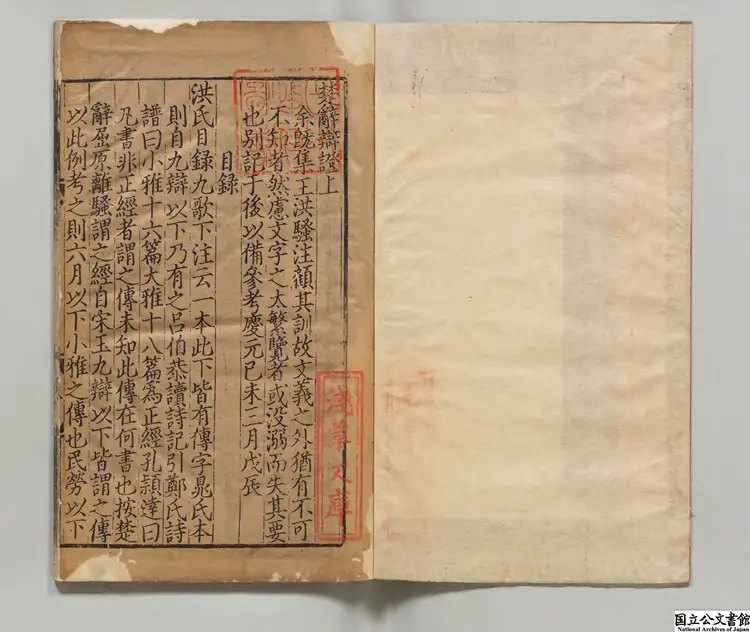 楚辭辯證上
余既集王洪騷注顧其訓故文義之外猶有不可
不知者然慮文字之太繁覽者或没溺而失其要
也别記于後以備參考慶元己未三月戊辰
目録
洪氏目録九歌下注云一本此下皆有傳字晁氏本
則自九辯以下乃有之吕伯恭讀詩記引鄭氏詩
譜曰小雅十六篇大雅十八篇為正經孔穎達曰
凡書非正經者謂之傳未知此傳在何書也按楚
辭屈原離騷謂之經自宋玉九辯以下皆謂之傳
以此例考之則六月以下小雅之傳也民勞以下
淺草文庫
国立公文書館
National Archives of Japan